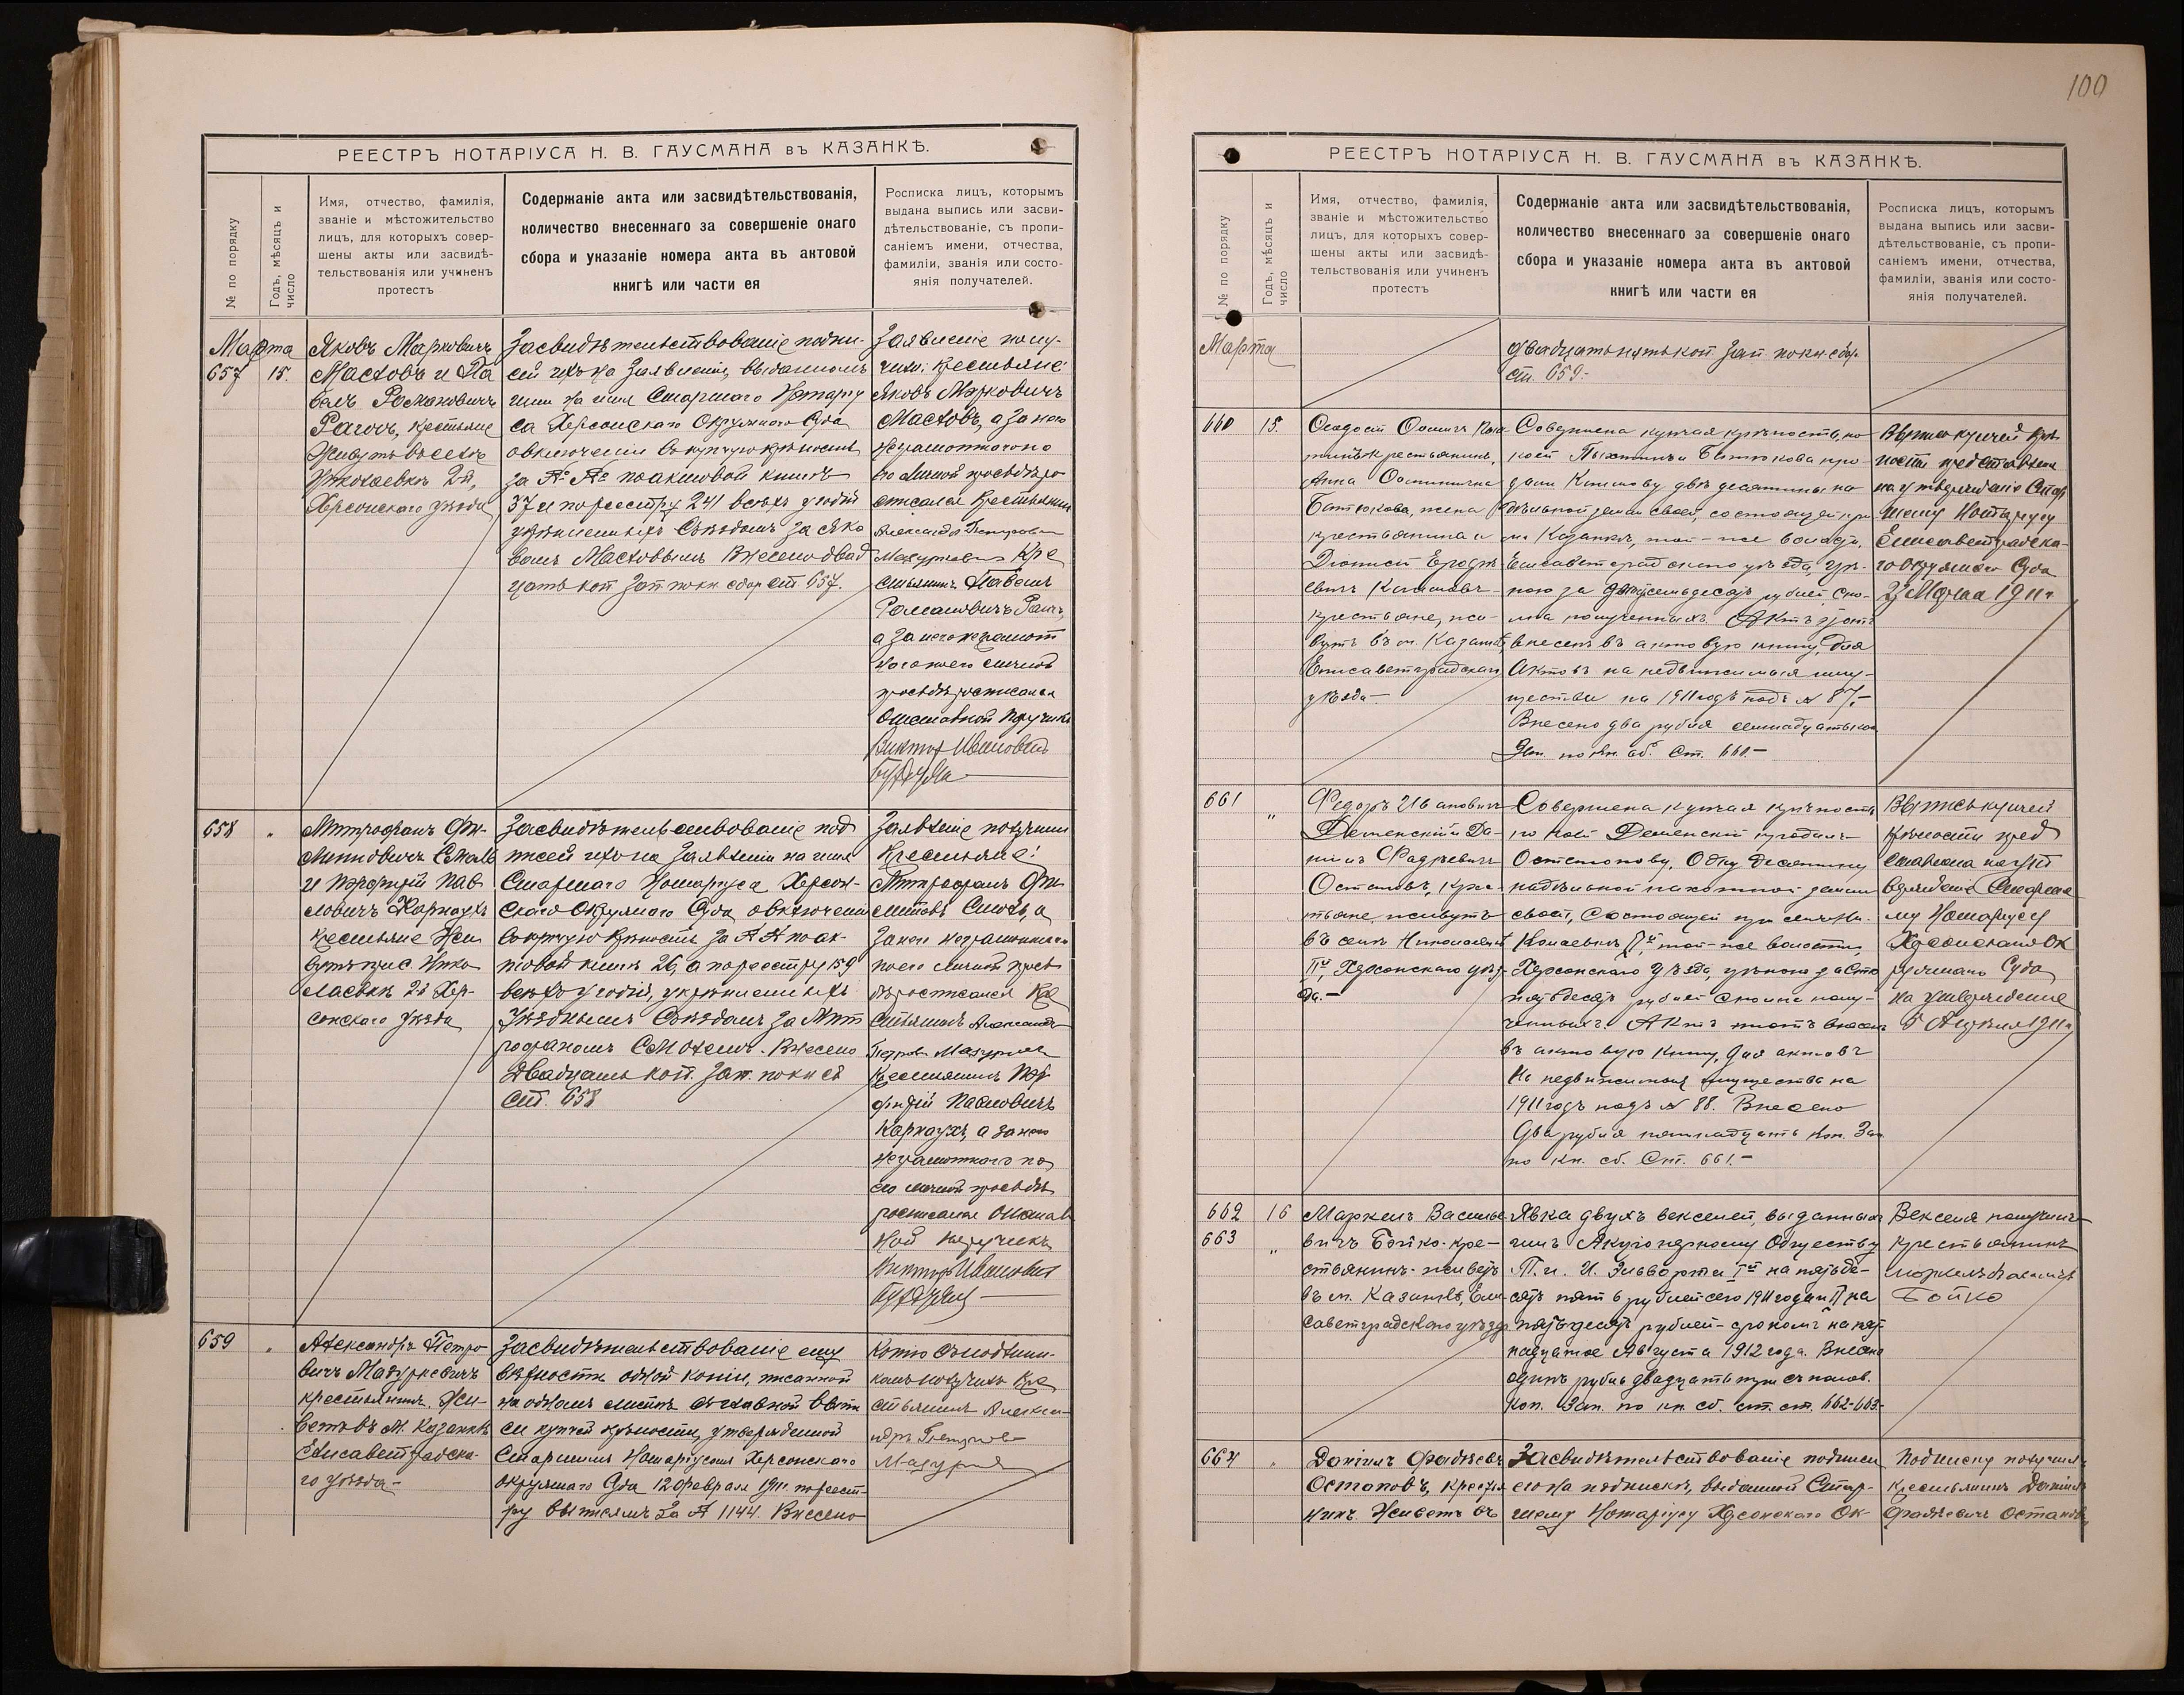 100
РЕЕСТРЪ НОТАРІУСА Н. В. ГАУСМАНА въ КАЗАНКѢ.
№ по порядку
Годъ, мѣсяцъ и число
Имя, отчество, фамилія,
званіе и мѣстожительство
лицъ, для которыхъ совер-
шены акты или засвидѣ-
тельствованія или учиненъ
протестъ
Содержаніе акта или засвидѣтельствованія,
количество внесеннаго за совершеніе онаго
сбора и указаніе номера акта въ актовой
книгѣ или части ея
Росписка лицъ, которымъ
выдана выпись или засви-
дѣтельствованіе, съ пропи-
саніемъ имени, отчества,
фамиліи, званія или состо-
янія получателей.
Марта
657 15.
Яковъ Марковичъ
Мастовъ и Па
велъ Романовичъ
Рагочъ, крестьяне
живутъ въ селѣ
Николаевкѣ 2й,
Херсонскаго уѣзда
Засвидѣтельствованіе подпи-
сей ихъ на заявленіи, выданномъ
ими на имя Старшаго Нотаріу
са Херсонскаго Окружнаго Суда
о включеніи въ купчую крѣпость
за № № по актовой книгѣ
37 и по реестру 241 всѣхъ угодій
укрѣпленныхъ Съѣздомъ за Яко
вомъ Мастовымъ Внесено двад
цать коп Зап по кн сбор ст 657.
Заявленіе полу-
чили: крестьяне:
Яковъ Марковичъ
Мастовъ, а за него
неграмотнаго по
его личной просьбѣ ро
списался крестьянинъ
Александръ Петровичъ
Мазуркевичъ Кре
стьянинъ Павелъ
Романовичъ Рагочъ,
а за него неграмот
наго по его личной
просьбѣ росписался
Отставной поручикъ
Викторъ Ивановичъ
658 „
Митрофанъ Фи-
липповичъ
и Порфирій Пав
ловичъ Карнаухъ
крестьяне жи
вутъ въ с. Нико
лаевкѣ 2й Хер-
сонскаго уѣзда
Засвидѣтельствованіе под
писей ихъ на заявленіи на имя
Старшаго Нотаріуса Херсон-
скаго Окружнаго Суда о включеніи
въ купчую крѣпость за № № по ак-
товой книгѣ 26, а по реестру 159
всѣхъ угодій, укрѣпленныхъ
Уѣзднымъ Съѣздомъ за Мит
рофаномъ Внесено
двадцать коп. Зап. по кн сб
ст. 658
Заявленіе получили
Крестьяне:
Митрофанъ Фи
а
за него неграмотнаго
по его личной прось
бѣ росписался Кре
стьянинъ Александръ
Петровичъ Мазуркевичъ
Крестьянинъ Пор
фирій Павловичъ
Карнаухъ, а за него
неграмотнаго по
его личной просьбѣ
росписался Отстав
ной поручикъ
Викторъ Ивановичъ
659 „
Александръ Петро
вичъ Мазуркевичъ
крестьянинъ. Жи-
ветъ въ м. Казанкѣ
Елисаветградска-
го уѣзда-
Засвидѣтельствованіе ему
вѣрности одной копіи, писанной
на одномъ листѣ съ главной выпи
си купчей крѣпости, утвержденной
Старшимъ Нотаріусомъ Херсонскаго
Окружнаго Суда 12 Февраля 1911 по реест-
ру выписямъ за № 1144. Внесено
Копію съ подлинни-
комъ получилъ Кре
стьянинъ Алекса
ндръ Петровичъ
РЕЕСТРЪ НОТАРІУСА Н. В. ГАУСМАНА въ КАЗАНКѢ.
№ по порядку
Годъ, мѣсяцъ и число
Имя, отчество, фамилія,
званіе и мѣстожительство
лицъ, для которыхъ совер-
шены акты или засвидѣ-
тельствованія или учиненъ
протестъ
Содержаніе акта или засвидѣтельствованія,
количество внесеннаго за совершеніе онаго
сбора и указаніе номера акта въ актовой
книгѣ или части ея
Росписка лицъ, которымъ
выдана выпись или засви-
дѣтельствованіе, съ пропи-
саніемъ имени, отчества,
фамиліи, званія или состо-
янія получателей.
Марта
двадцать пять коп. Зап. по кн сбор.
ст. 659.-
660 15.
крестьянинъ,
Анна
Батюкова, жена
крестьянина и
Діонисій
вичъ Климовъ-
крестьяне, жи-
вутъ въ м. Казанкѣ,
Елисаветградскаго
уѣзда-
Совершена купчая крѣпость, по
коей и Батюкова про
дали Климову двѣ десятины на
дѣльной земли своей, состоящей при
м. Казанкѣ, той-же волости,
Елисаветградскаго уѣзда, цѣ-
ною за рублей, спо-
лна полученныхъ. Актъ этотъ
внесенъ въ актовую книгу, для
Актовъ на недвижимыя иму-
щества на 1911 годъ подъ № 87.-
Внесено два рубля семнадцать коп
Зап. по кн. сб. ст. 660.-
Выпись купчей крѣ
пости представлена
на утвержденіе Стар
шему Нотаріусу
Елисаветградска-
го Окружнаго Суда
Марта 1911 г
661 „
Федоръ Ивановичъ
Деменскій и Да-
ніилъ Фадѣевичъ
Остаповъ, крес-
тьяне, живутъ
въ селѣ Николаевкѣ
IIй, Херсонскаго уѣз-
да.-
Совершена купчая крѣпость
по коей Деменскій продалъ
Остапову, одну десятину
надѣльной пахотной земли
своей, состоящей при селѣ Ни-
колаевкѣ IIй, той-же волости,
Херсонскаго уѣзда, цѣною за сто
пятьдесятъ рублей сполна полу-
ченныхъ. Актъ этотъ внесенъ
въ актовую книгу, для актовъ
на недвижимыя имущества на
1911 годъ подъ № 88. Внесено
два рубля пятнадцать коп. Зап
по кн. сб. Ст. 661.-
Выпись купчей
крѣпости пред
ставлена на утв
ержденіе Старше
му Нотаріусу
Херсонскаго Ок
ружнаго Суда
на утвержденіе
5 Апрѣля 1911 г
662 16
663 „
Маркелъ Василье-
вичъ Бойко-кре-
стьянинъ-живетъ
въ м. Казанкѣ, Ели-
саветградскаго уѣзда
Явка двухъ векселей, выданныхъ
имъ Акціонерному Обществу
Р. и Т. Эльворти Iй на пятьде-
сятъ пять рублей сего 1911 года и IIй на
пятьдесятъ рублей-срокомъ на пят-
надцатое Августа 1912 года. Внесено
одинъ рубль двадцать три съ полов.
коп. Зап. по кн сб. ст. ст. 662-663.-
Векселя получилъ-
крестьянинъ
Бойко
664 „
Даніилъ Фадѣевичъ
Остаповъ, крестья
нинъ. Живетъ въ
Засвидѣтельствованіе подписи
его на подпискѣ, выданной Стар-
шему Нотаріусу Херсонскаго Ок-
Подписку получилъ
крестьянинъ Даніилъ
Фадѣевичъ Остаповъ